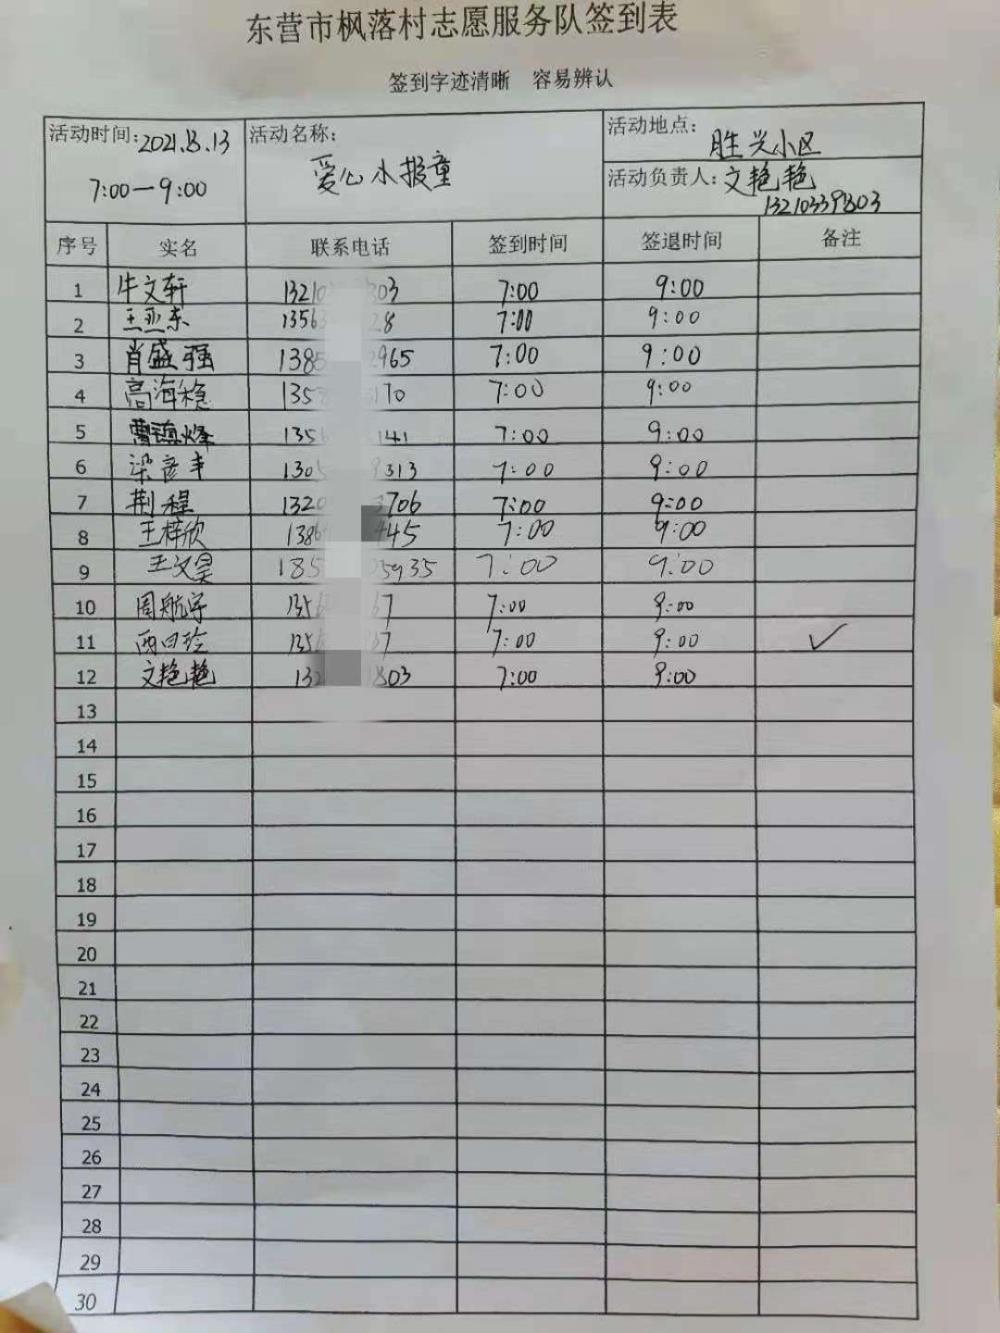 东营市枫落村志愿服务队签到表
签到字迹清晰 容易辨认
活动时间: 2021.8.13
7:00—9:00
活动名称:
爱心小报童
活动地点: 胜兴小区
活动负责人: 文艳艳
13210339803
序号 实名 联系电话 签到时间 签退时间 备注
1 牛文轩 1321 803 7:00 9:00
2 王亚东 1356 28 7:00 9:00
3 肖盛强 138 2965 7:00 9:00
4 高海稳 135 170 7:00 9:00
5 曹镇烽 135 141 7:00 9:00
6 梁彦丰 130 9313 7:00 9:00
7 荆程 1320 3706 7:00 9:00
8 王梓欣 138 445 7:00 9:00
9 王文昊 185 05935 7:00 9:00
10 周航宇 1356 67 7:00 9:00
11 135 7:00 9:00 ✓
12 文艳艳 132 803 7:00 9:00
13
14
15
16
17
18
19
20
21
22
23
24
25
26
27
28
29
30